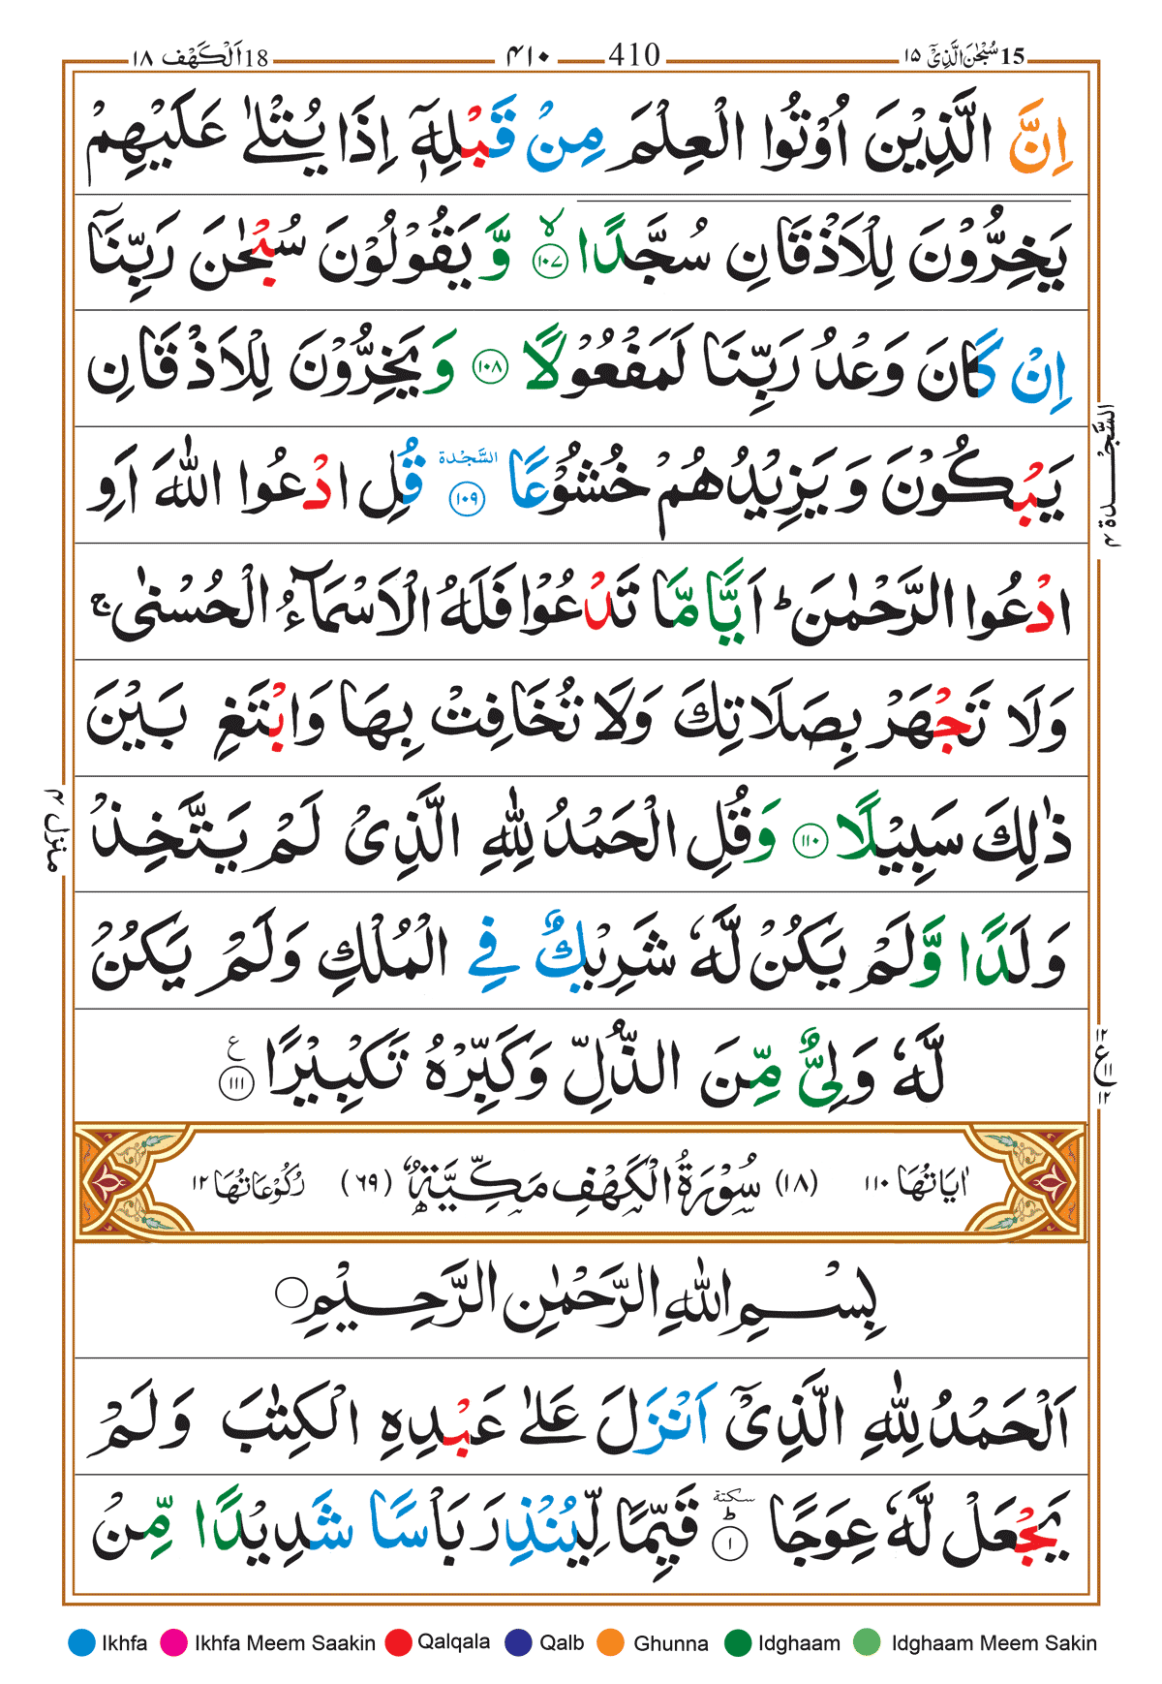 15 سُبْحٰنَ الَّذِیْۤ ۱۵ 410 ۴۱۰ 18 اَلْكَهْف ۱۸
اِنَّ الَّذِیْنَ اُوْتُوا الْعِلْمَ مِنْ قَبْلِهٖۤ اِذَا یُتْلٰى عَلَیْهِمْ
یَخِرُّوْنَ لِلْاَذْقَانِ سُجَّدًا ۙ ۱۰۷ وَّ یَقُوْلُوْنَ سُبْحٰنَ رَبِّنَاۤ
اِنْ كَانَ وَعْدُ رَبِّنَا لَمَفْعُوْلًا ۱۰۸ وَ یَخِرُّوْنَ لِلْاَذْقَانِ
السَّجْدَة ۴
یَبْكُوْنَ وَ یَزِیْدُهُمْ خُشُوْعًا السَّجْدَة ۱۰۹ قُلِ ادْعُوا اللّٰهَ اَوِ
ادْعُوا الرَّحْمٰنَ ؕ اَیًّا مَّا تَدْعُوْا فَلَهُ الْاَسْمَآءُ الْحُسْنٰى ۚ
وَلَا تَجْهَرْ بِصَلَاتِكَ وَلَا تُخَافِتْ بِهَا وَابْتَغِ بَیْنَ
ذٰلِكَ سَبِیْلًا ۱۱۰ وَقُلِ الْحَمْدُ لِلّٰهِ الَّذِیْ لَمْ یَتَّخِذْ
منزل ۴
وَلَدًا وَّلَمْ یَكُنْ لَّهٗ شَرِیْكٌ فِی الْمُلْكِ وَلَمْ یَكُنْ
لَّهٗ وَلِیٌّ مِّنَ الذُّلِّ وَكَبِّرْهُ تَكْبِیْرًا ع ۱۱۱
۱۲ ع ۱۱ ۱۲
اٰیَاتُهَا ۱۱۰ (۱۸) سُوْرَةُ الْكَهْفِ مَكِّیَّةٌ (۶۹) رُكُوْعَاتُهَا ۱۲
بِسْمِ اللّٰهِ الرَّحْمٰنِ الرَّحِیْمِ
اَلْحَمْدُ لِلّٰهِ الَّذِیْۤ اَنْزَلَ عَلٰى عَبْدِهِ الْكِتٰبَ وَلَمْ
یَجْعَلْ لَّهٗ عِوَجًا سكتة ؕ ۱ قَیِّمًا لِّیُنْذِرَ بَاْسًا شَدِیْدًا مِّنْ
Ikhfa Ikhfa Meem Saakin Qalqala Qalb Ghunna Idghaam Idghaam Meem Sakin